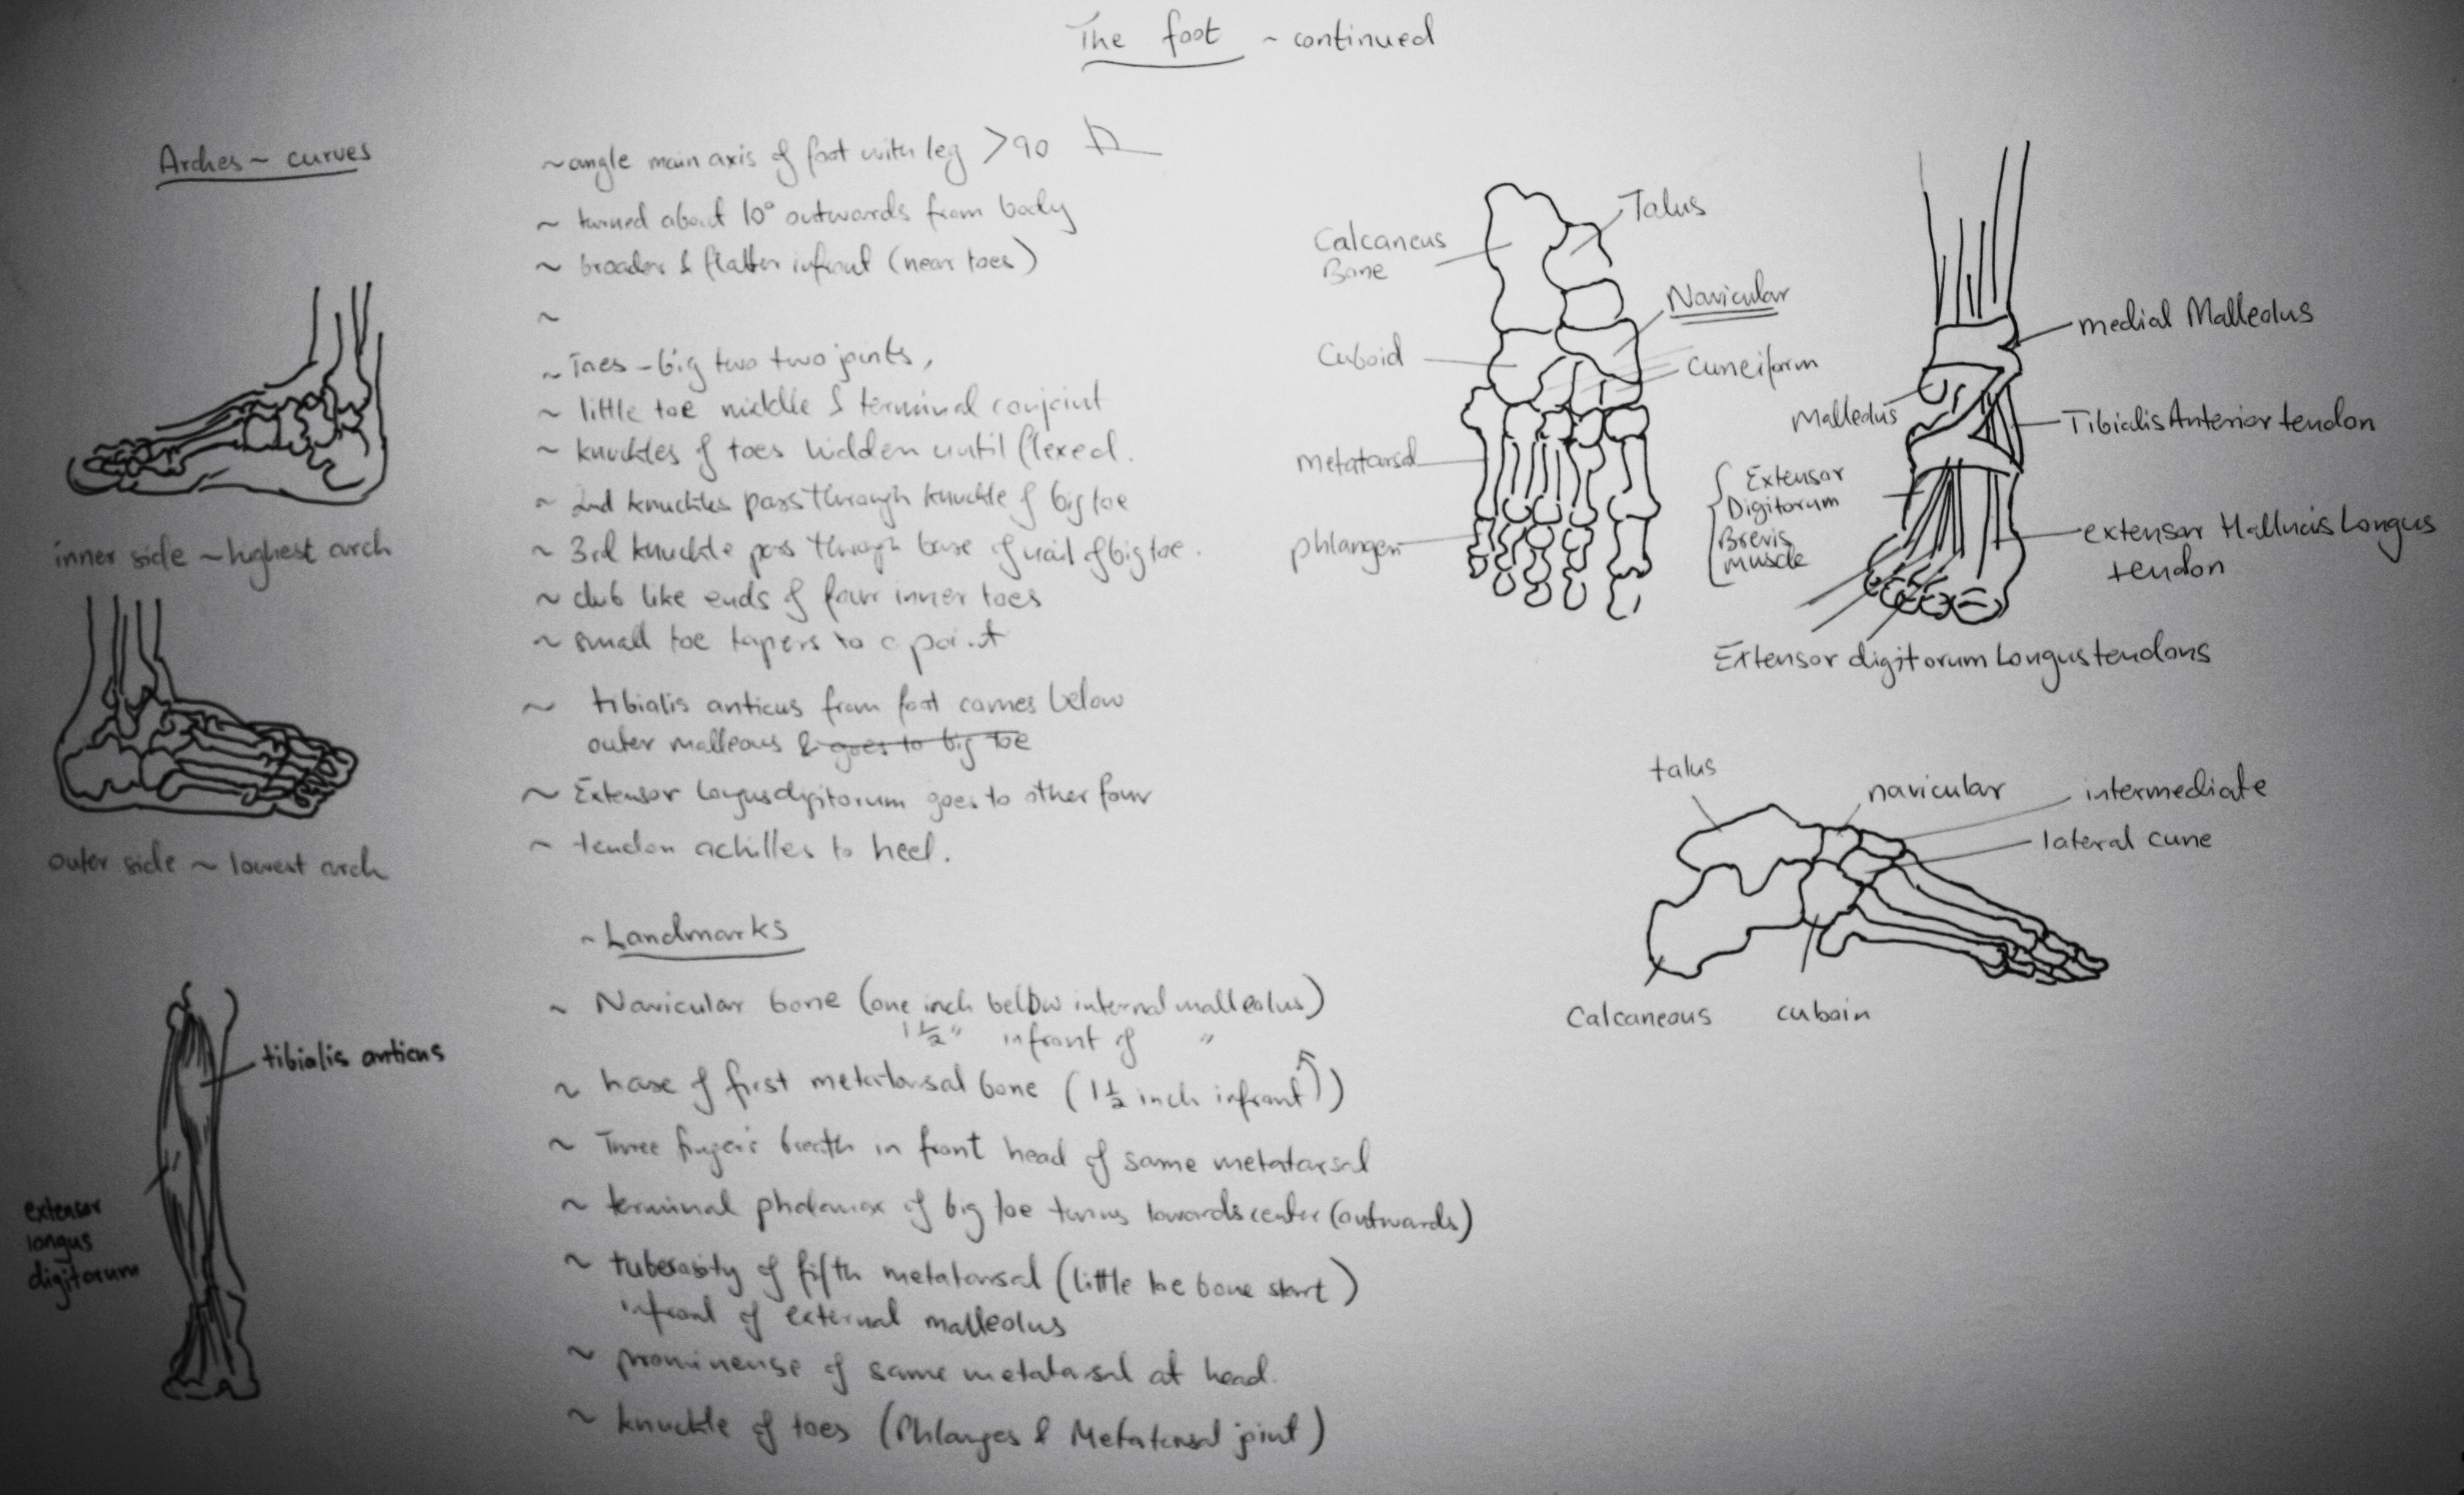 The foot ~ continued
Arches ~ curves
inner side ~ highest arch
outer side ~ lowest arch
tibialis anticus
extensor
longus
digitorum
~ angle main axis of foot with leg >90
~ turned about 10° outwards from body
~ broader & flatter infront (near toes)
~
~ Toes - big two two joints,
~ little toe middle & terminal conjoint
~ knuckles of toes hidden until flexed.
~ 2nd knuckles pass through knuckle of big toe
~ 3rd knuckle pass through base of nail of big toe.
~ club like ends of four inner toes
~ small toe tapers to a point
~ tibialis anticus from foot comes below
outer malleous & goes to big toe
~ Extensor longus digitorum goes to other four
~ tendon achilles to heel.
~ Landmarks
~ Navicular bone (one inch below internal malleolus)
1½" infront of "
~ base of first metatarsal bone (1½ inch infront)
~ Three finger's breath in front head of same metatarsal
~ terminal phalanax of big toe turns towards center (outwards)
~ tuberosity of fifth metatarsal (little toe bone start)
infront of external malleolus
~ prominense of same metatarsal at head.
~ knuckle of toes (Phlanges & Metatarsal joint)
Talus
Calcaneus
Bone
Navicular
Cuboid
Cuneiform
metatarsal
phlangen
medial Malleolus
Malleolus
Tibialis Anterior tendon
Extensor
Digitorum
Brevis
muscle
extensor Hallucis Longus
tendon
Extensor digitorum Longus tendons
talus
navicular
intermediate
lateral cune
Calcaneous
cuboin